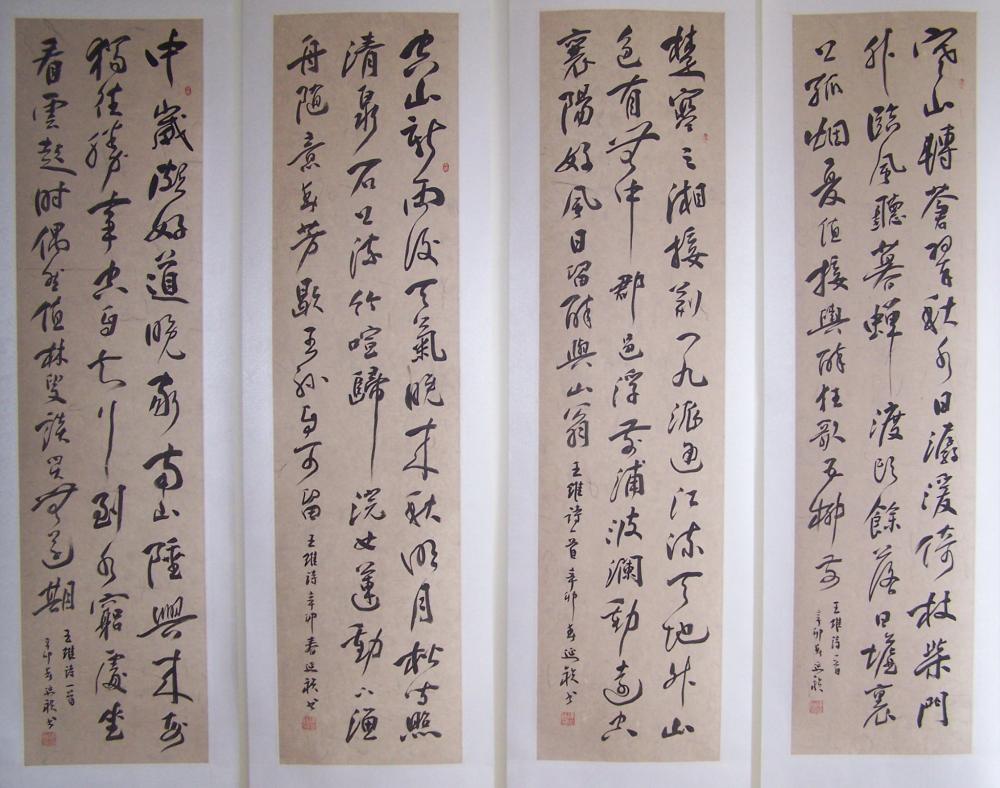 寒山轉蒼翠秋水日潺湲倚杖柴門
外臨風聽暮蟬渡头餘落日墟裏
上孤烟复值接輿醉狂歌五柳前
王維詩一首
辛卯春延
楚塞三湘接荆门九派通江流天地外山
色有無中郡邑浮前浦波瀾動遠空
襄陽好風日留醉與山翁 王維詩一首 辛卯春延书
空山新雨後天氣晚来秋明月松间照
清泉石上流竹喧歸浣女蓮動下渔
舟隨意春芳歇王孙自可留 王維詩 辛卯春延书
中歲頗好道晚家南山陲興来每
獨往勝事空自知行到水窮處坐
看雲起时偶然值林叟談笑無還期
王維詩一首
辛卯春延书